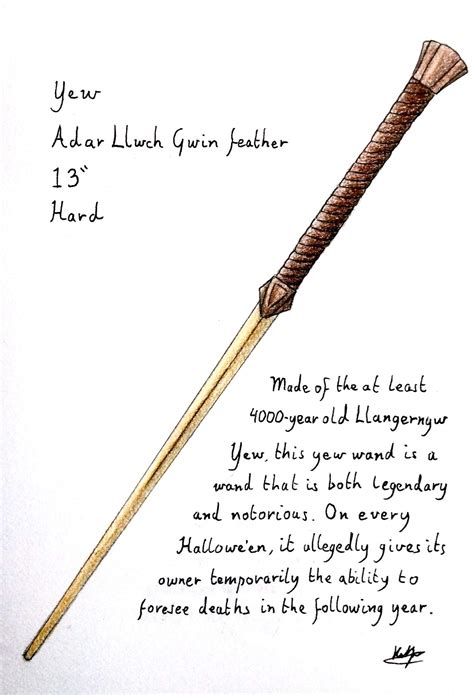 Yew
Adar Llwch Gwin feather
13"
Hard
Made of the at least
4000-year old Llangernyw
Yew, this yew wand is a
wand that is both legendary
and notorious. On every
Hallowe'en, it allegedly gives its
owner temporarily the ability to
foresee deaths in the following year.